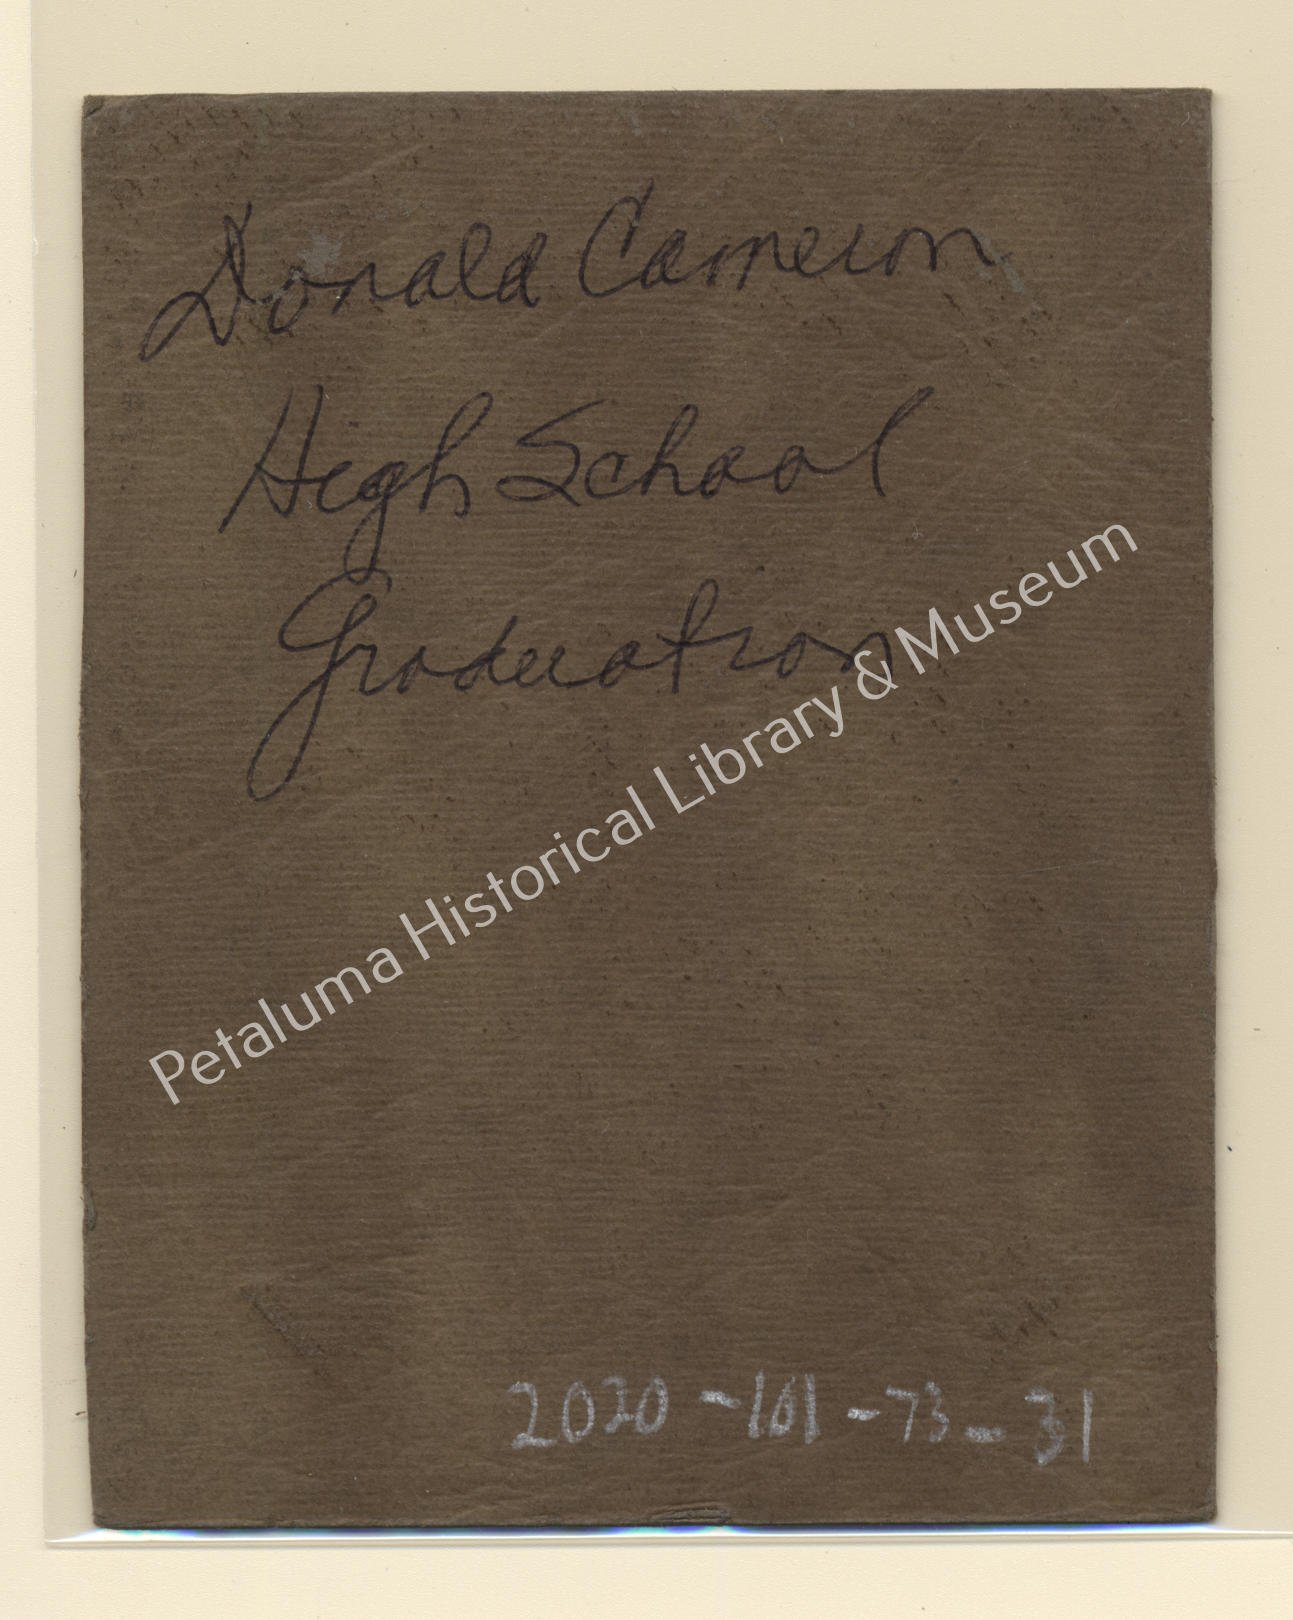 Donald Cameron
High School
Graduation
Petaluma Historical Library & Museum
2020-101-73-31